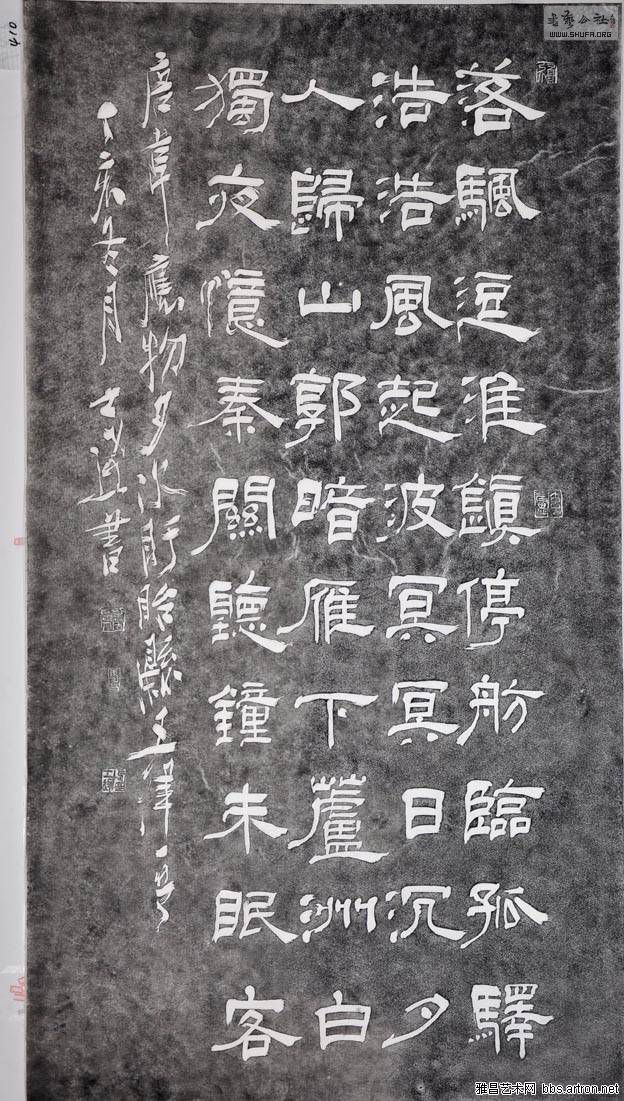 書藝公社
WWW.SHUFA.ORG
410
落颿逗淮鎮停舫臨孤驛
浩浩風起波冥冥日沉夕
人歸山郭暗雁下蘆洲白
獨夜憶秦關聽鐘未眠客
唐韋應物夕次盱眙縣五律一首
丁亥冬月士澍書
雅昌艺术网 bbs.artron.net